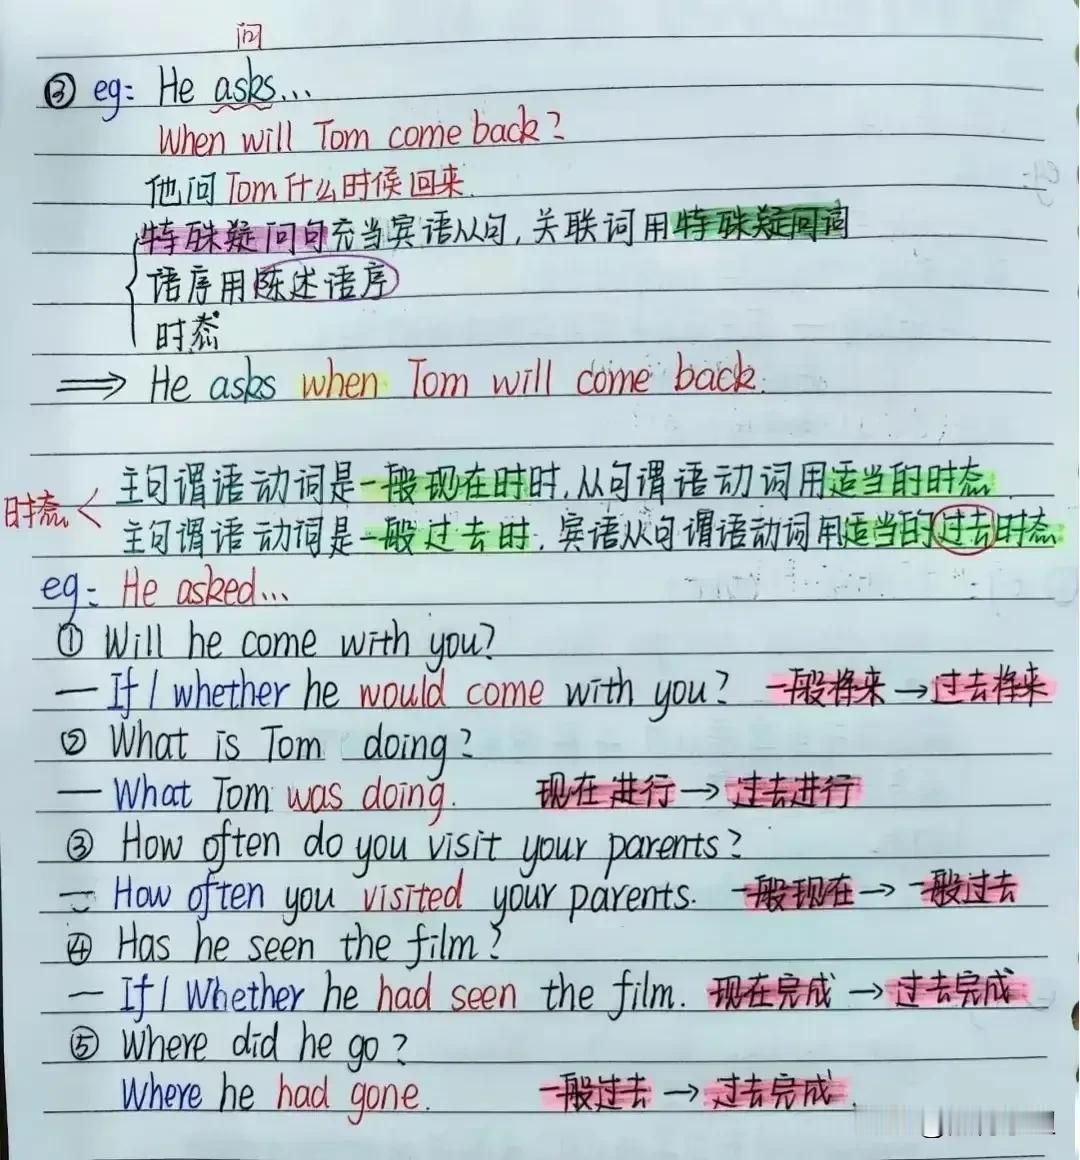 问
③ eg: He asks...
When will Tom come back?
他问Tom什么时候回来.
特殊疑问句充当宾语从句,关联词用特殊疑问词
语序用陈述语序
时态
⇒ He asks when Tom will come back.
主句谓语动词是一般现在时时,从句谓语动词用适当的时态.
时态<
主句谓语动词是一般过去时,宾语从句谓语动词用适当的过去时态
eg: He asked...
① Will he come with you?
— If / whether he would come with you? 一般将来→过去将来
② What is Tom doing?
— What Tom was doing. 现在进行→过去进行
③ How often do you visit your parents?
— How often you visited your parents. 一般现在→一般过去
④ Has he seen the film?
— If / Whether he had seen the film. 现在完成→过去完成
⑤ Where did he go?
Where he had gone. 一般过去→过去完成.